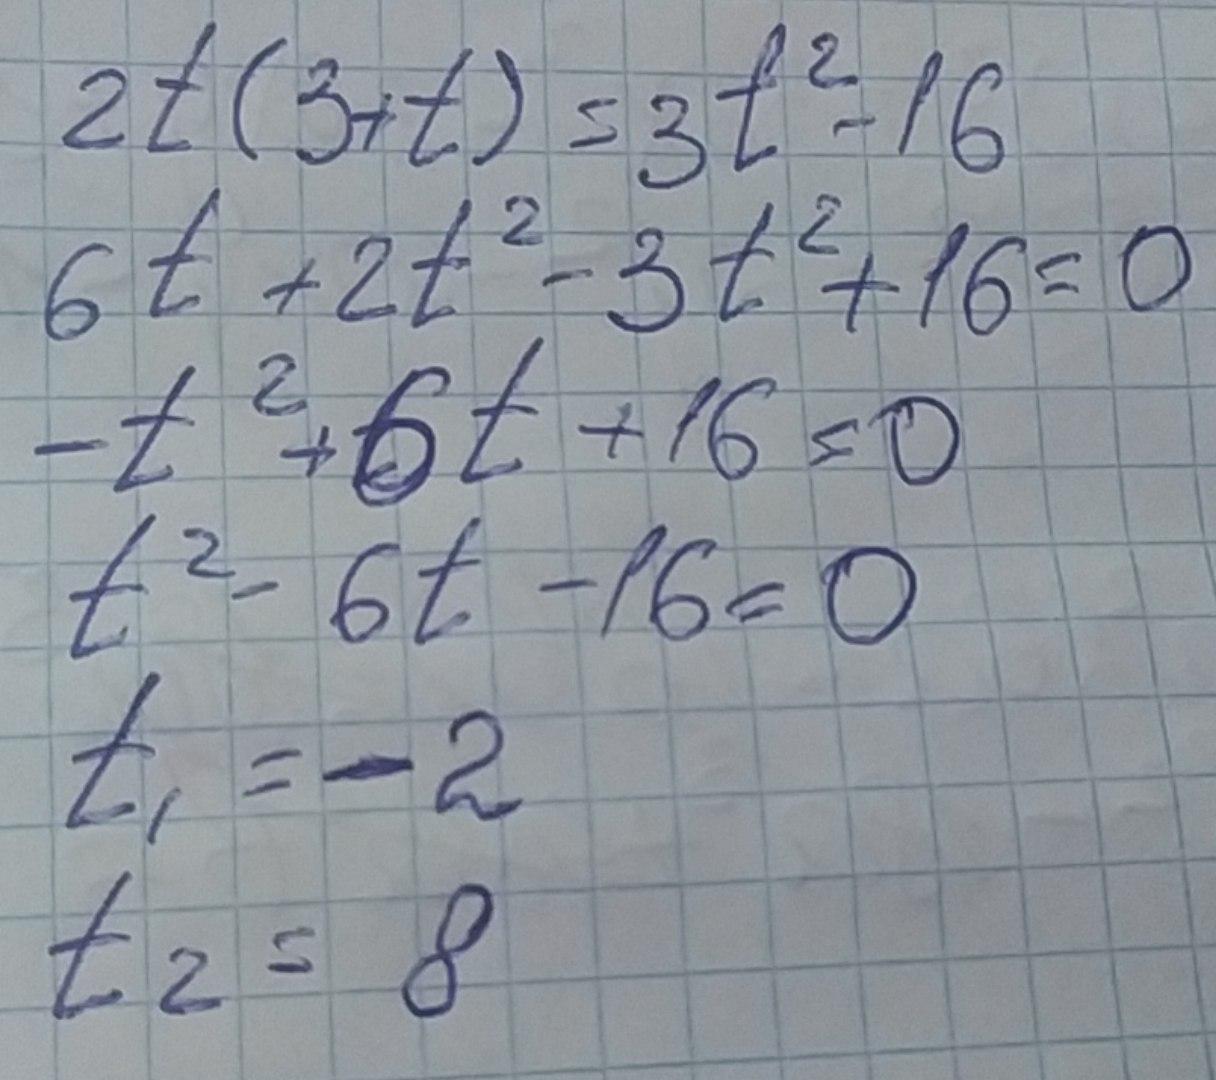 2t(3+t)=3t²-16
6t+2t²-3t²+16=0
-t²+6t+16=0
t²-6t-16=0
t₁=-2
t₂=8